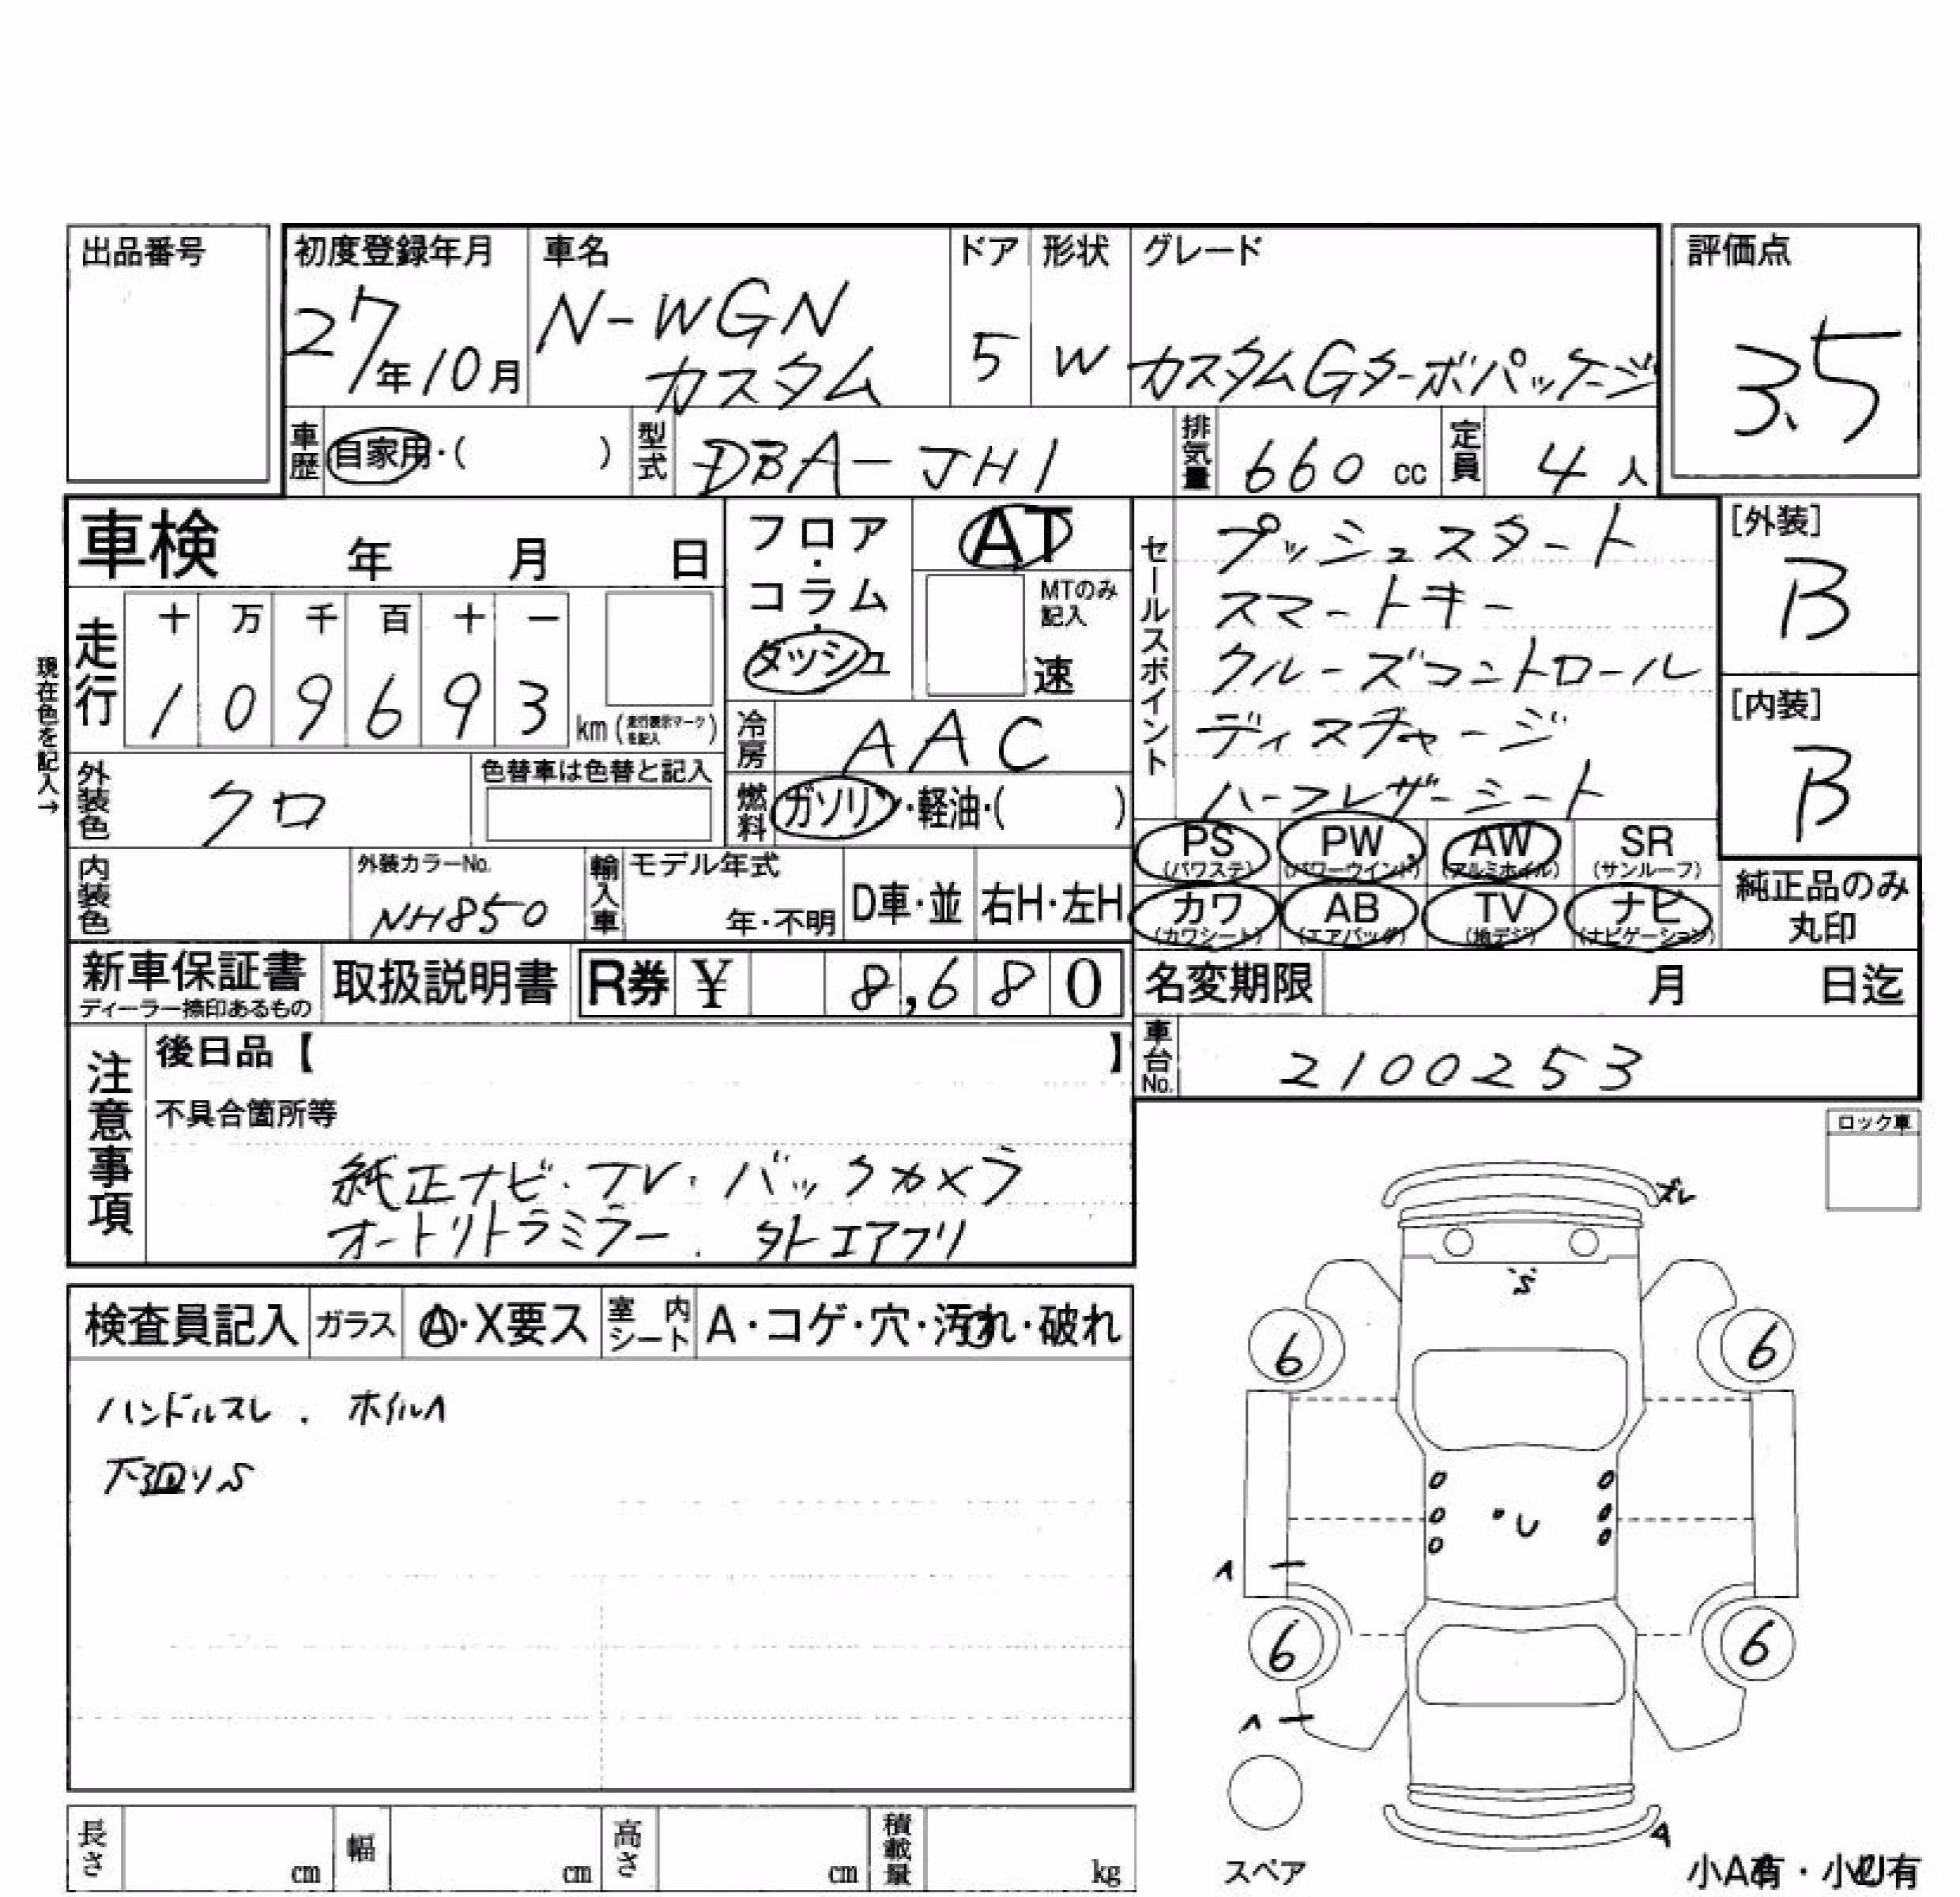 出品番号
初度登録年月
27年10月
車名
N-WGN
カスタム
ドア
5
形状
W
グレード
カスタムGターボパッケージ
評価点
3.5
車歴
自家用・( )
型式
DBA-JH1
排気量
660 cc
定員
4人
車検 年 月 日
フロア・コラム・ダッシュ
AT
MTのみ記入
速
セールスポイント
プッシュスタート
スマートキー
クルーズコントロール
ディスチャージ
ハーフレザーシート
[外装]
B
[内装]
B
現在色を記入→
走行
十 万 千 百 十 一
1 0 9 6 9 3
km (走行表示マークを記入)
冷房
AAC
外装色
クロ
色替車は色替と記入
燃料
ガソリン・軽油・( )
PS (パワステ)
PW (パワーウインド)
AW (アルミホイル)
SR (サンルーフ)
カワ (カワシート)
AB (エアバッグ)
TV (地デジ)
ナビ (ナビゲーション)
純正品のみ丸印
内装色
外装カラーNo.
NH850
輸入車
モデル年式
年・不明
D車・並
右H・左H
新車保証書
ディーラー捺印あるもの
取扱説明書
R券 ¥ 8,680
名変期限 月 日迄
車台No.
2100253
注意事項
後日品【 】
不具合箇所等
純正ナビ・TV・バックカメラ
オートリトラミラー . 外エアフリ
ロック車
検査員記入
ガラス
A・X要ス
室内シート
A・コゲ・穴・汚れ・破れ
ハンドルスレ . ホイルA
下廻りS
ズレ
S
6
6
U
A
6
6
A
A
スペア
小A有・小U有
長さ cm
幅 cm
高さ cm
積載量 kg